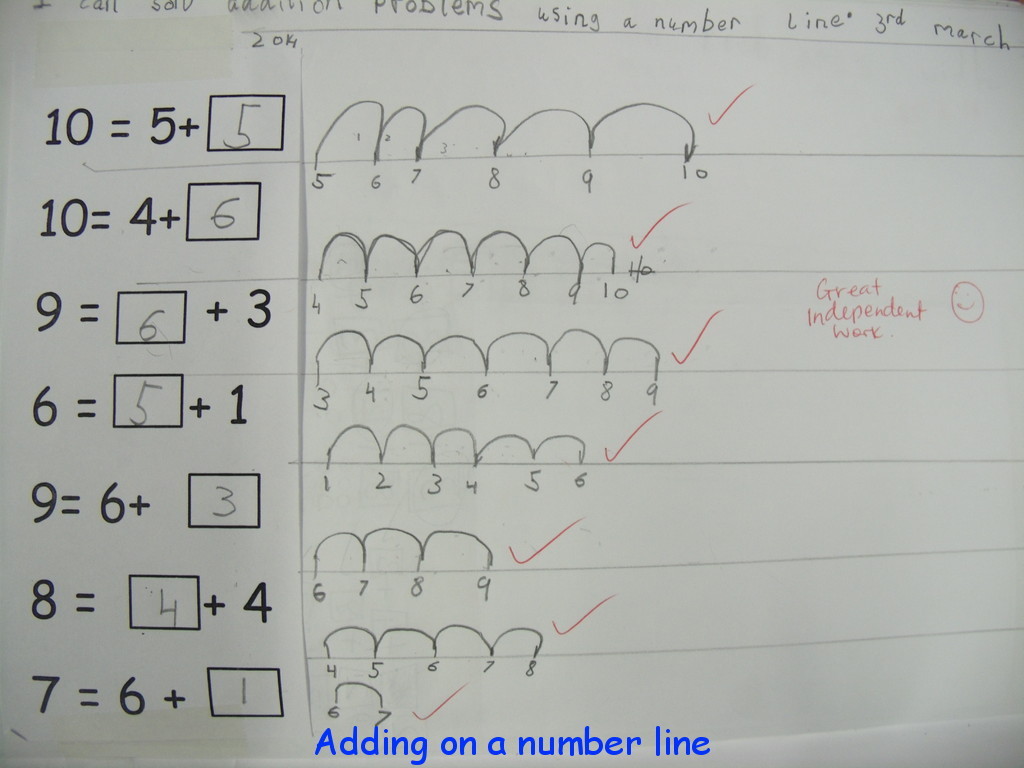 I can solv addition problems using a number line. 3rd march
2014
10 = 5+ 5
1 2 3
5 6 7 8 9 10
10= 4+ 6
4 5 6 7 8 9 10
9 = 6 + 3
Great
independent
work.
3 4 5 6 7 8 9
6 = 5 + 1
1 2 3 4 5 6
9= 6+ 3
6 7 8 9
8 = 4 + 4
4 5 6 7 8
7 = 6 + 1
6 7
Adding on a number line